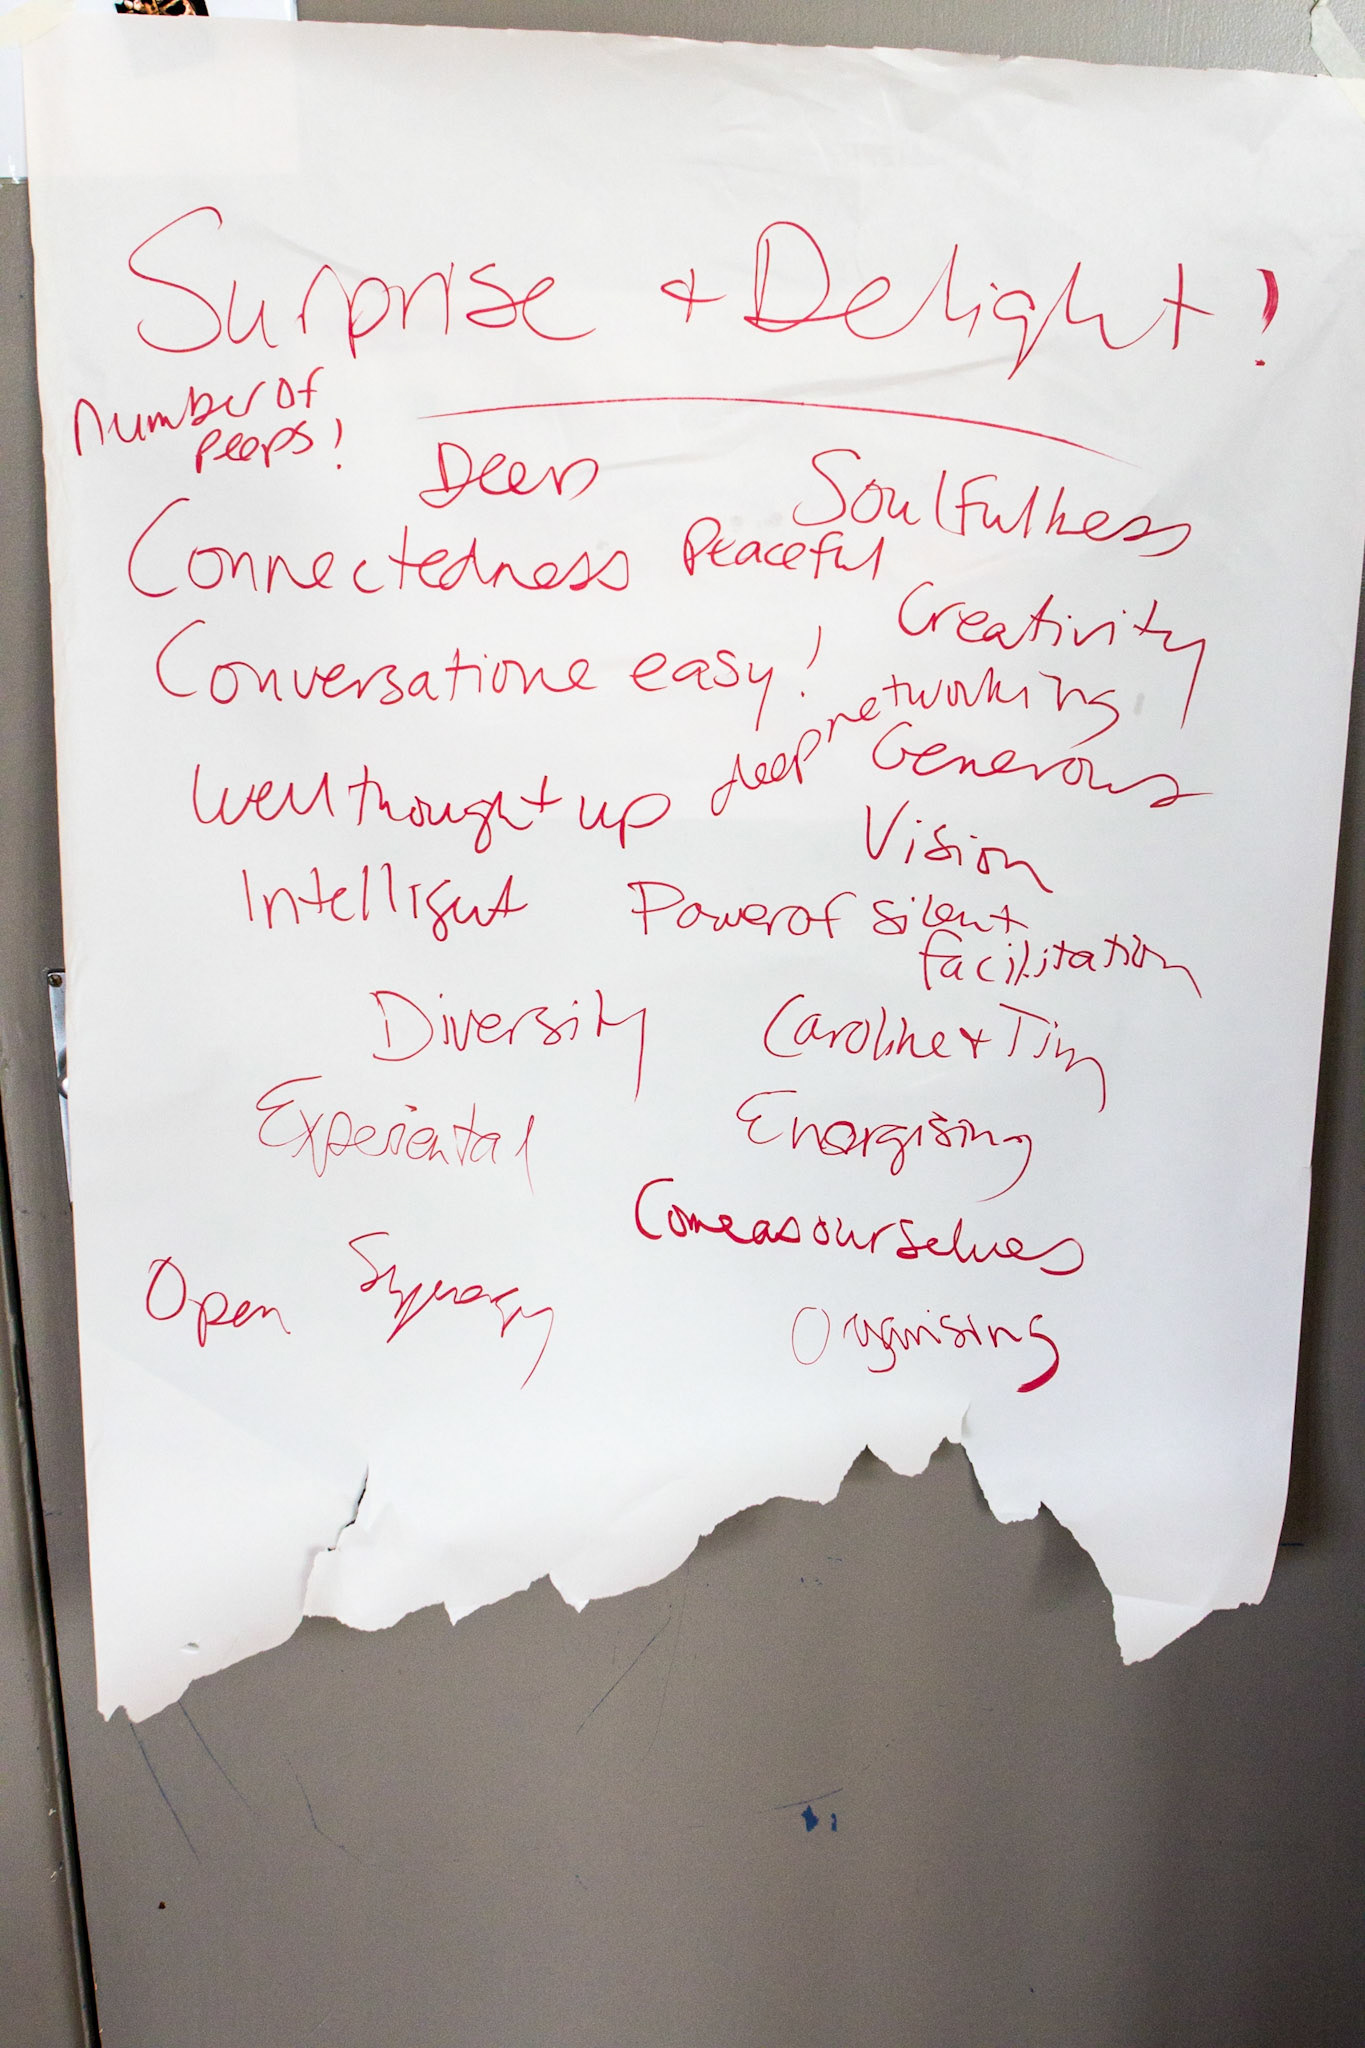 Surprise + Delight!
Number of
peeps!
Deep
Soulfulness
Connectedness
Peaceful
Creativity
Conversatione easy!
deep networking
Generous
Well thought up
Vision
Intelligut
Power of silent
facilitation
Diversity
Caroline + Tim
Experiental
Energising
Come as ourselves
Open
Synergy
Organising